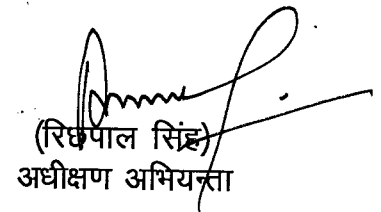 (रिछपाल सिंह)
अधीक्षण अभियन्ता